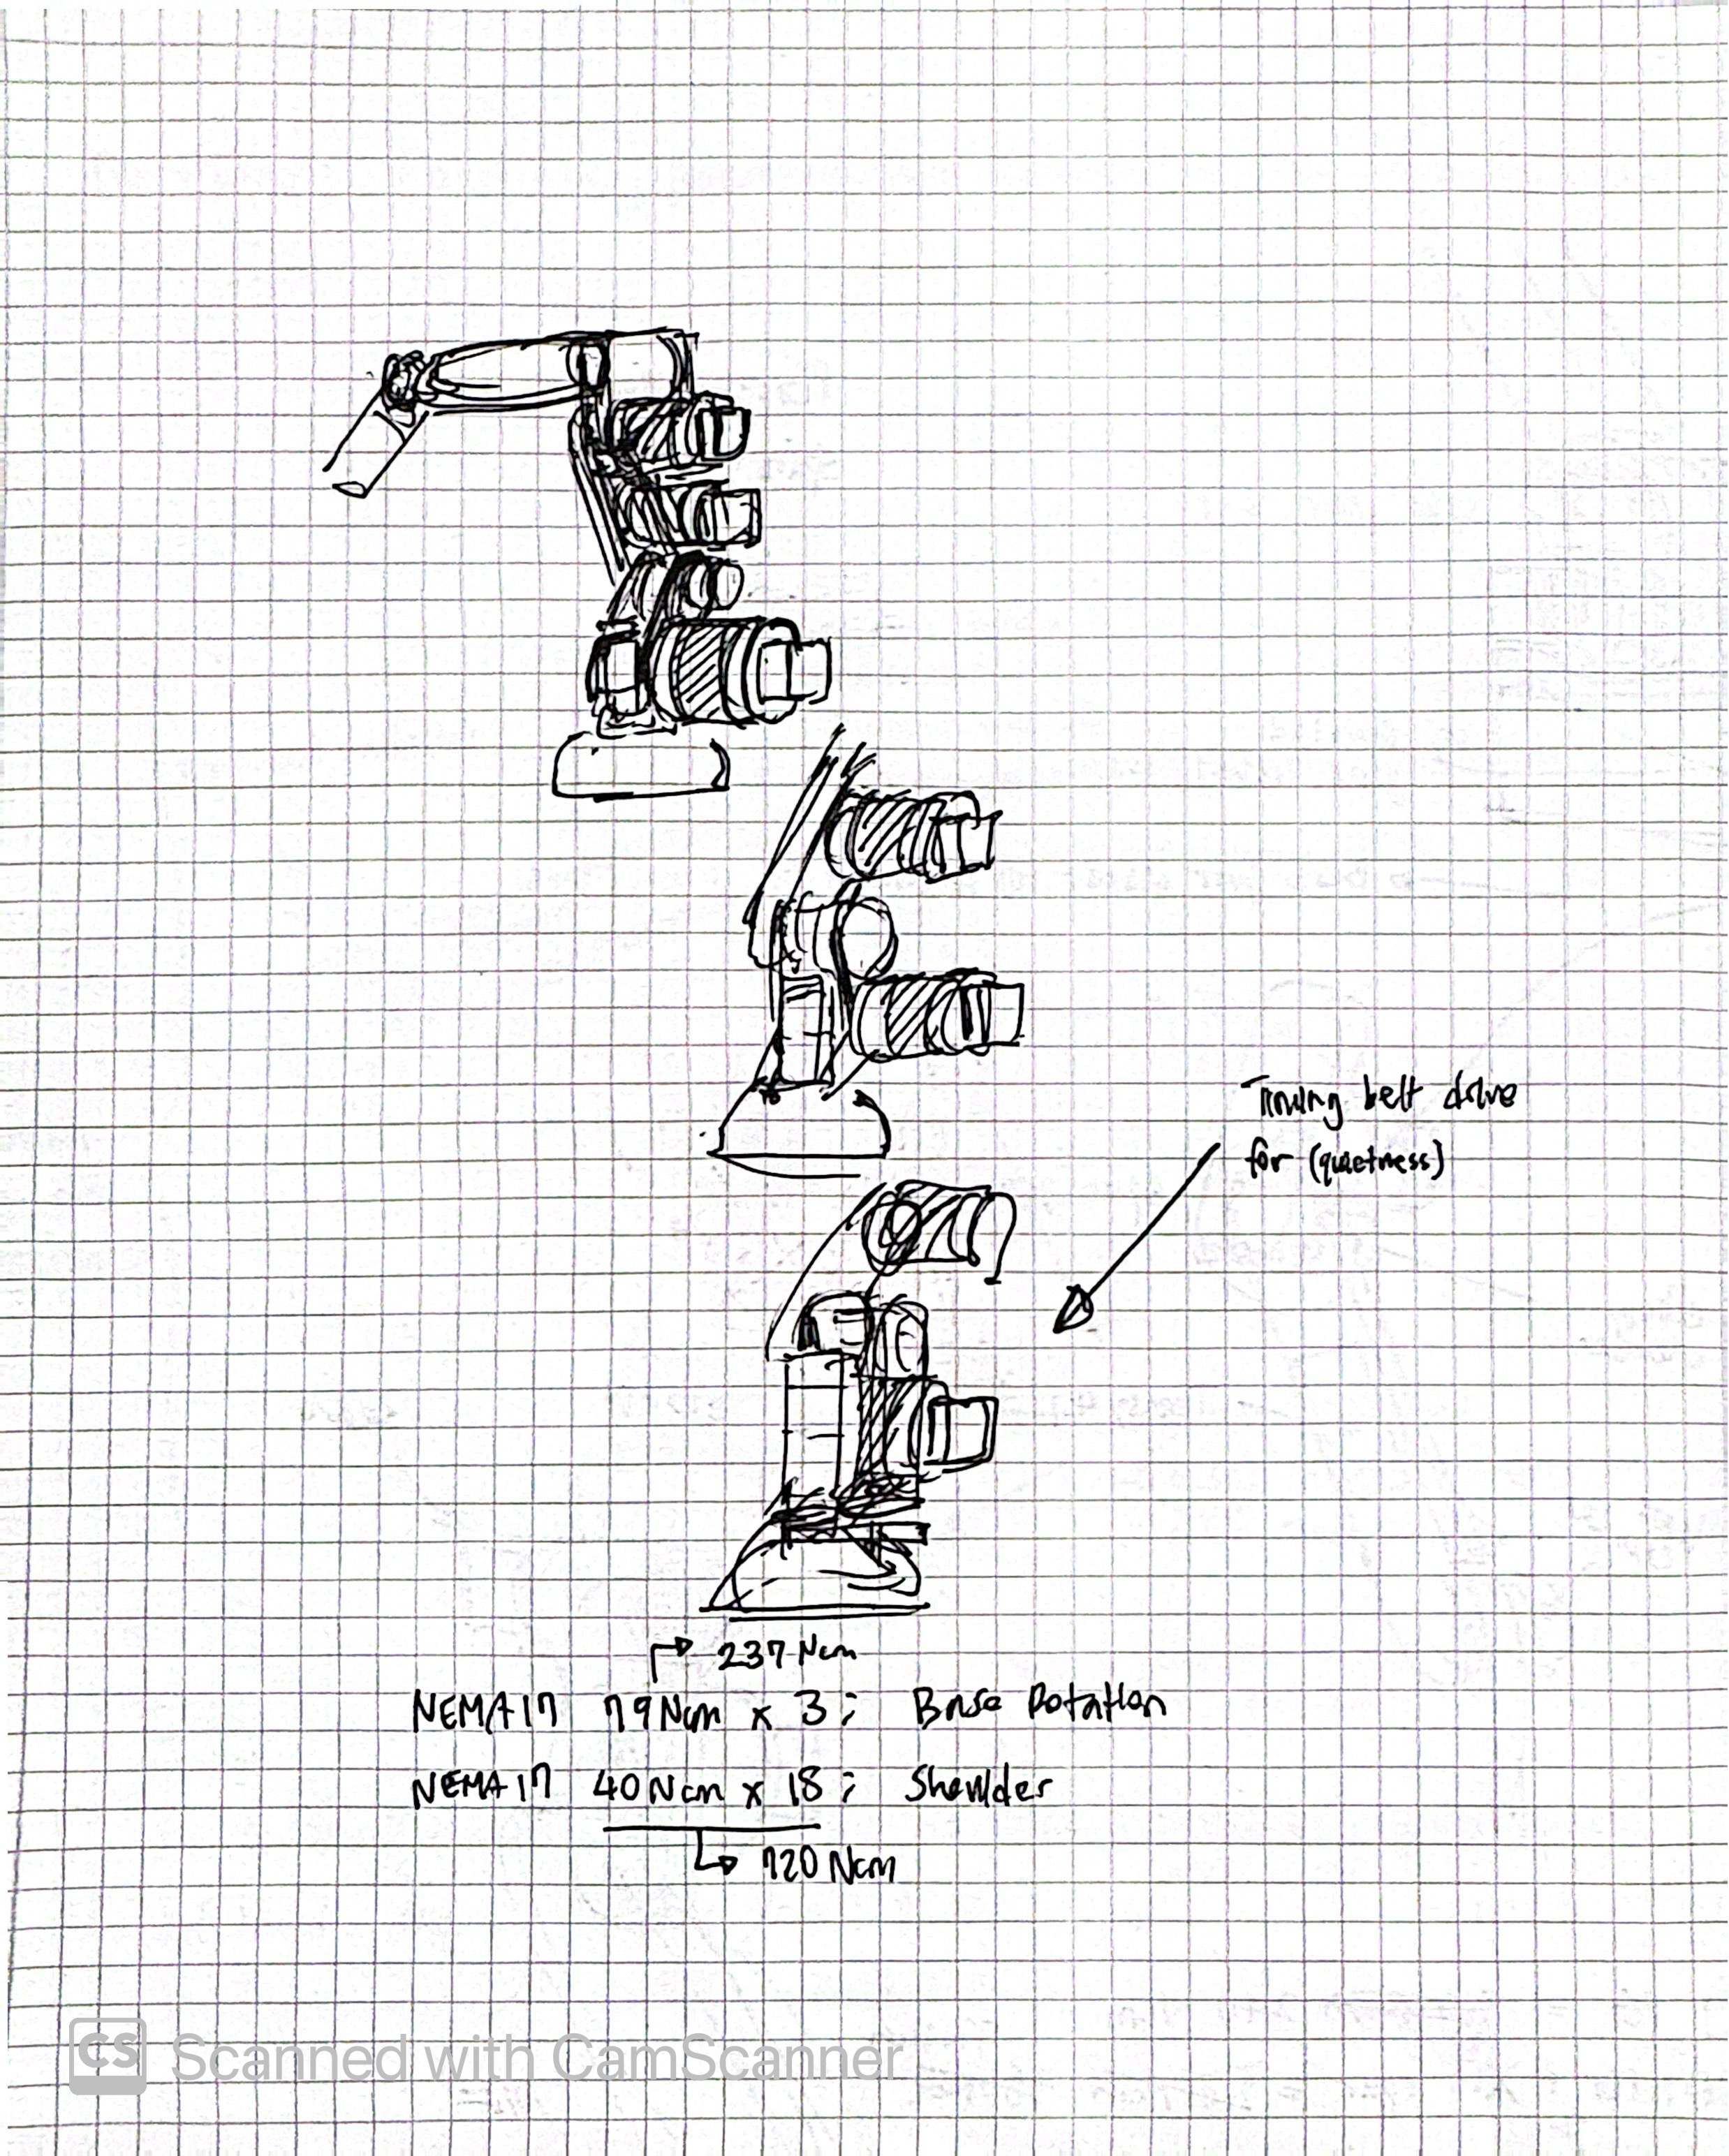 Timing belt drive
for (quietness)
237 Ncm
NEMA17 79Ncm x 3; Base Rotation
NEMA17 40Ncm x 18; Shoulder
720 Ncm
CS Scanned with CamScanner